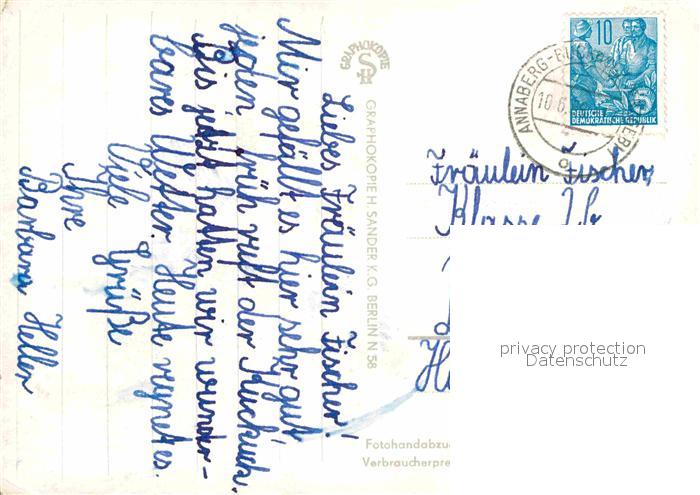 Liebes Fräulein Fischer!
Mir gefällt es hier sehr gut
jeden früh ruft der Kuckuck.
Bis jetzt hatten wir wunder-
bares Wetter. Heute regnet es.
Viele Grüße
Ihre
Barbara Heller
GRAPHOKOPIE
GRAPHOKOPIE H. SANDER K.G. BERLIN N 58
10
DEUTSCHE
DEMOKRATISCHE REPUBLIK
5
ANNABERG-BUCH
10.6.
Fräulein Fischer,
Klasse
privacy protection
Datenschutz
Fotohandabzu
Verbraucherpre